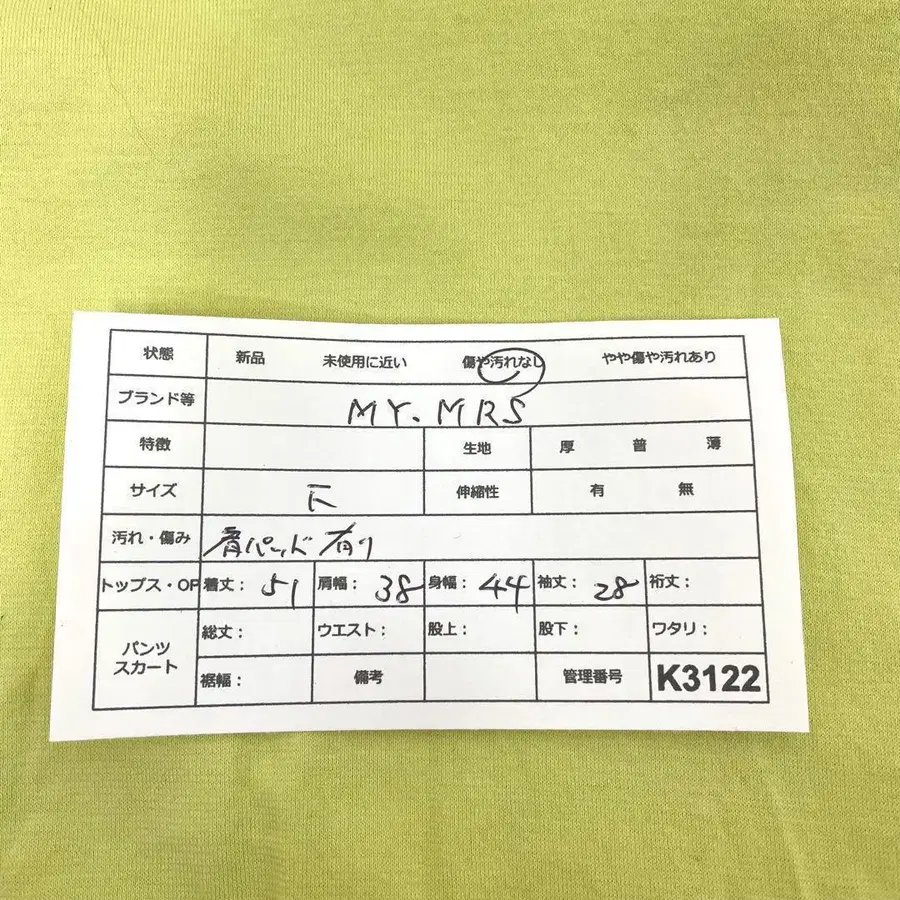 状態 新品 未使用に近い 傷や汚れなし やや傷や汚れあり
ブランド等 MY. MRS
特徴 生地 厚 普 薄
サイズ 伸縮性 有 無
汚れ・傷み 肩パッド有り
トップス・OP 着丈: 51 肩幅: 38 身幅: 44 袖丈: 28 裄丈:
パンツ スカート 総丈: ウエスト: 股上: 股下: ワタリ:
裾幅: 備考 管理番号 K3122